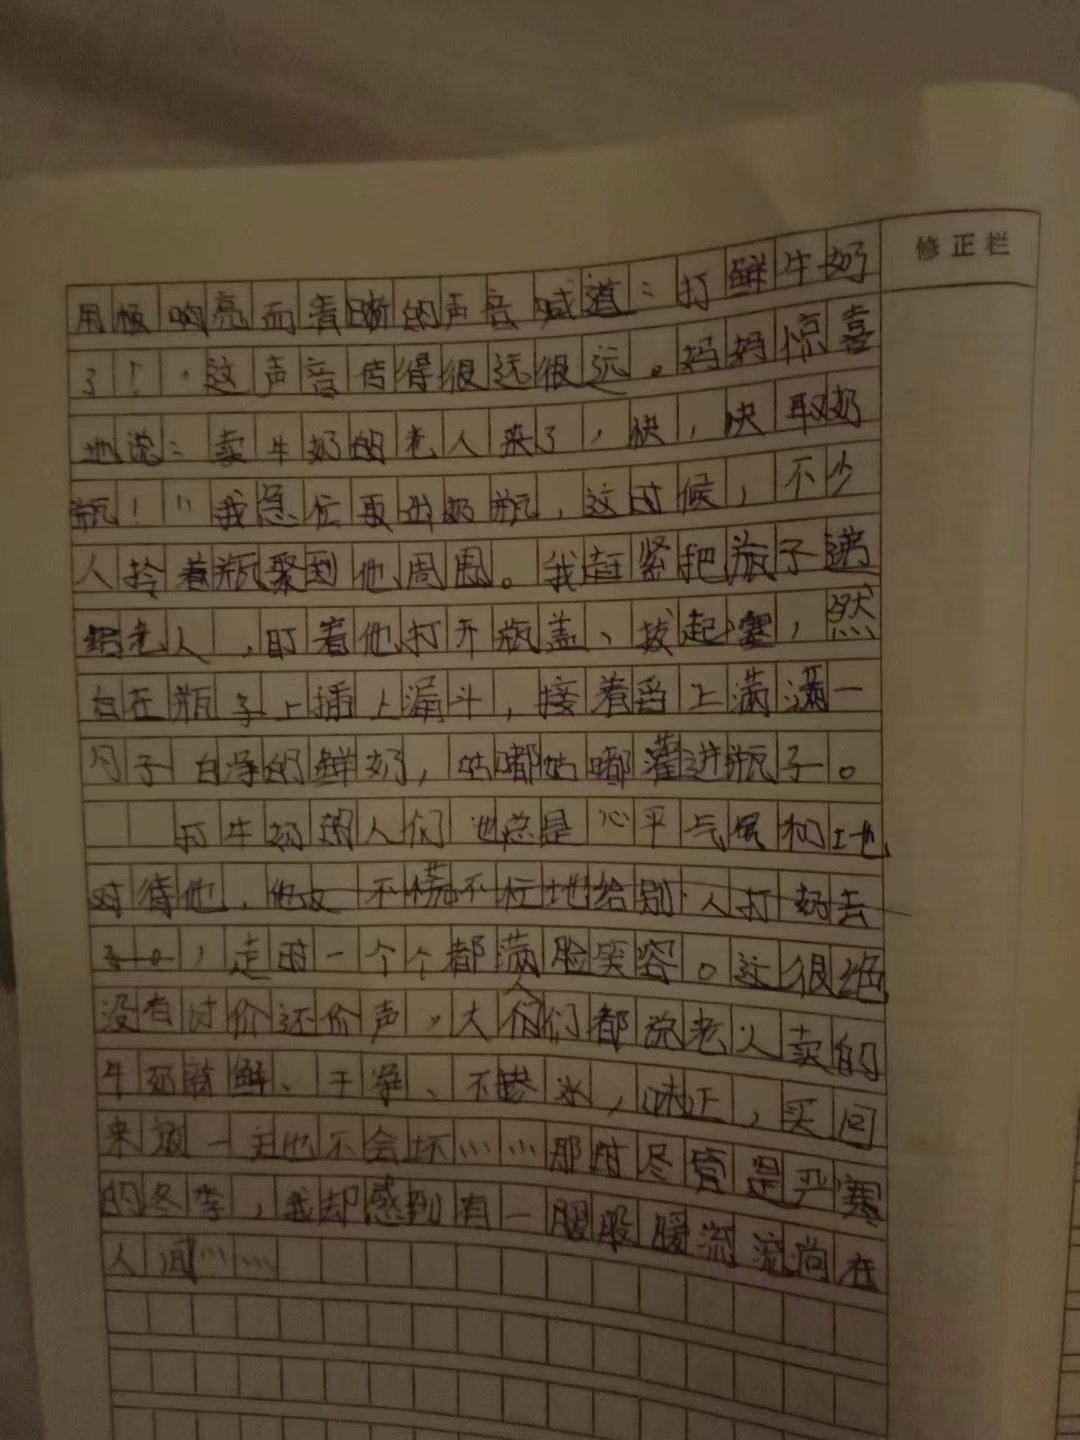 修正栏
用极响亮而清晰的声音喊道：打鲜牛奶
了！。这声音传得很远很远。妈妈惊喜
地说：卖牛奶的老人来了，快，快取奶
瓶！”我急忙取出奶瓶，这时候，不少
人拎着瓶聚到他周围。我赶紧把瓶子递
给老人，盯着他打开瓶盖、拔起塞，然
在瓶子上插上漏斗，接着舀上满满一
子白净的鲜奶，咕嘟咕嘟灌进瓶子。
打牛奶的人们也总是心平气和地
对待他，他又不慌不忙地给别人打奶去
了。，走时一个个都满脸笑容。这很绝
没有讨价还价声，大人们都说老人卖的
牛奶就鲜、干净、不掺水，味正，买回
来放一天也不会坏……那时尽管是严寒
的冬季，我却感到有一股股暖流流淌在
人间……